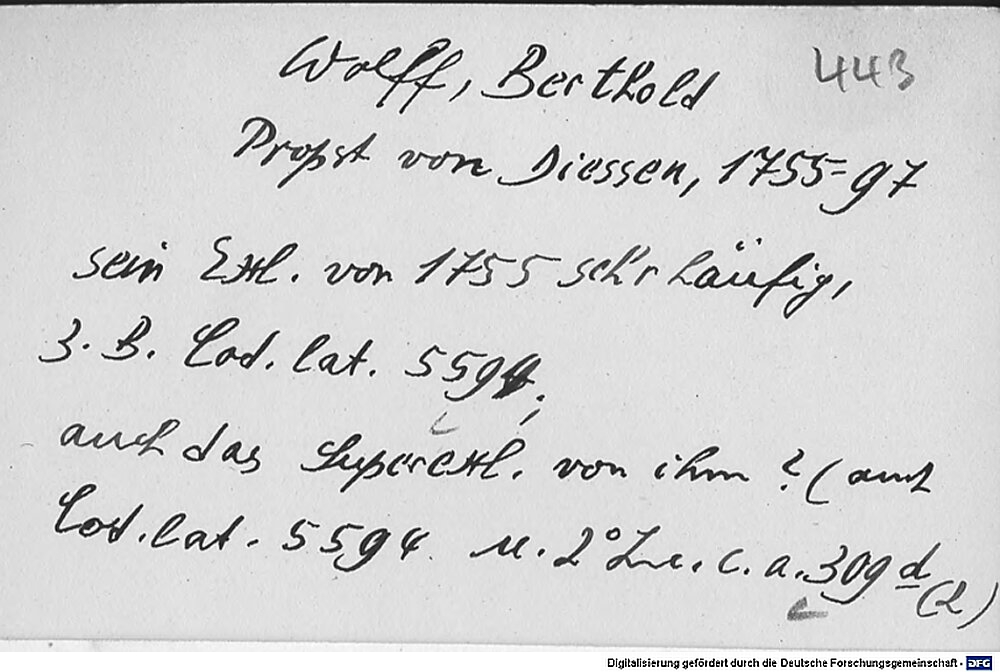 Wolff, Berthold 443
Propst von Diessen, 1755-97
sein Exl. von 1755 sehr häufig,
z. B. Cod. lat. 5594;
auch das Superexl. von ihm? (auch
Cod. lat. 5594. u. 2° Inc. c. a. 309 d (2)
Digitalisierung gefördert durch die Deutsche Forschungsgemeinschaft - DFG